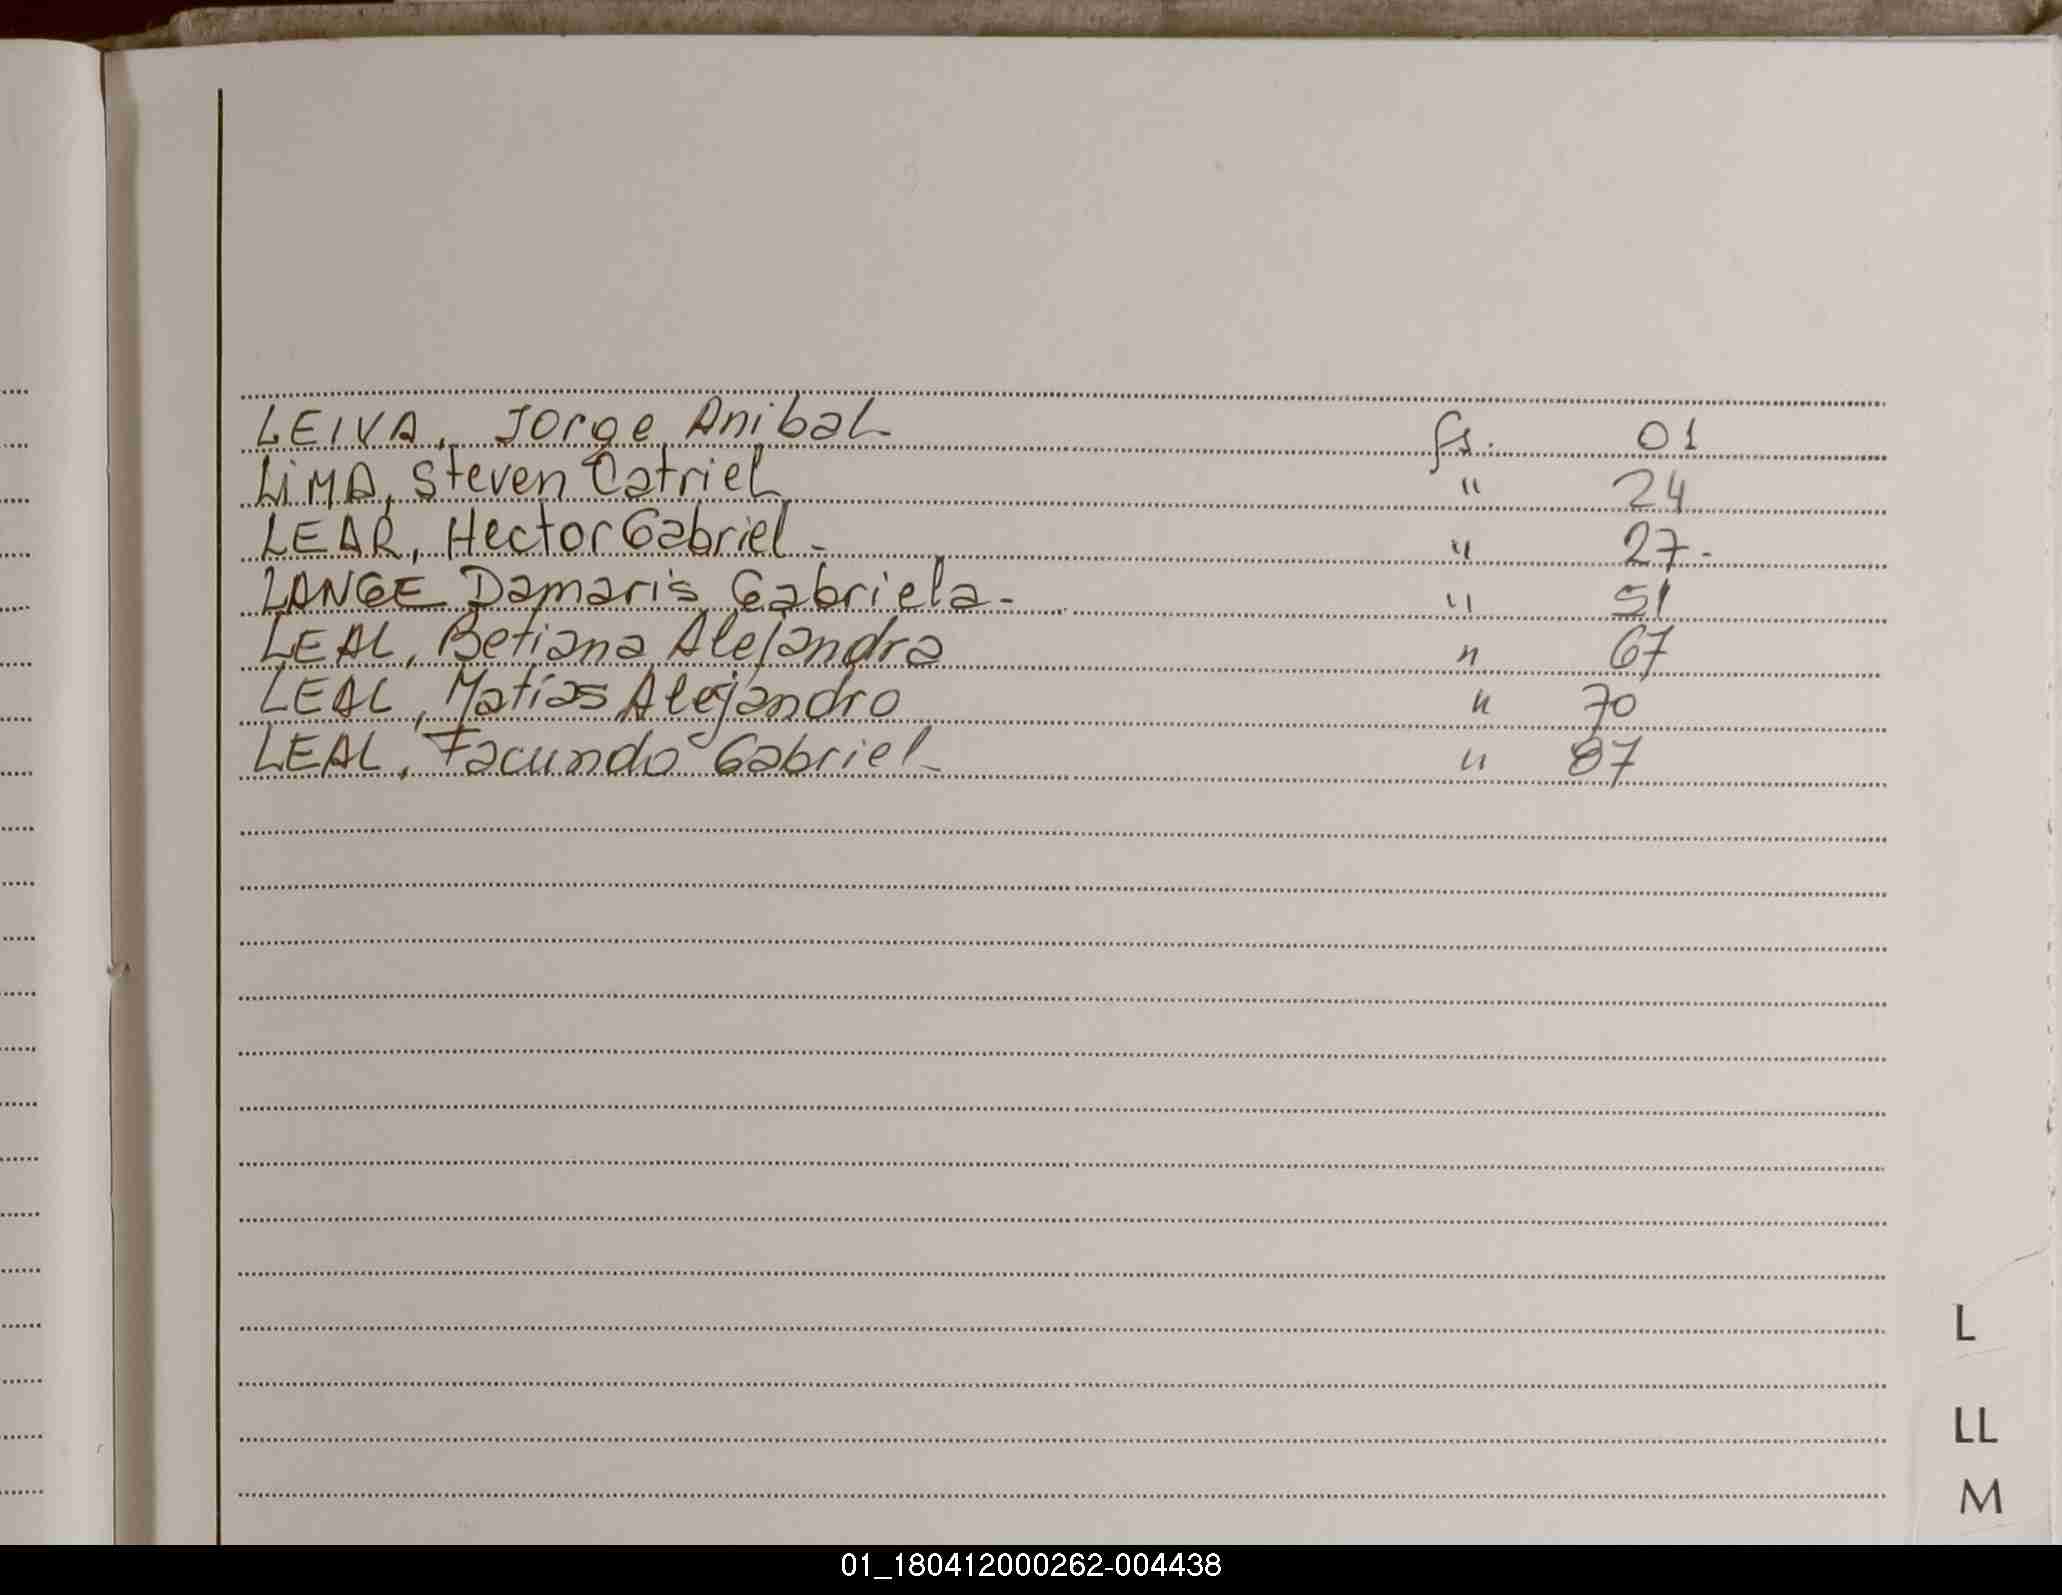 LEIVA, Jorge Anibal fs. 01
LiMA, Steven Catriel " 24
LEAR, Hector Gabriel - " 27.-
LANGE Damaris Gabriela - " 51
LEAL, Betiana Alejandra " 67
LEAL, Matías Alejandro " 70
LEAL, Facundo Gabriel - " 87
L
LL
M
01_180412000262-004438